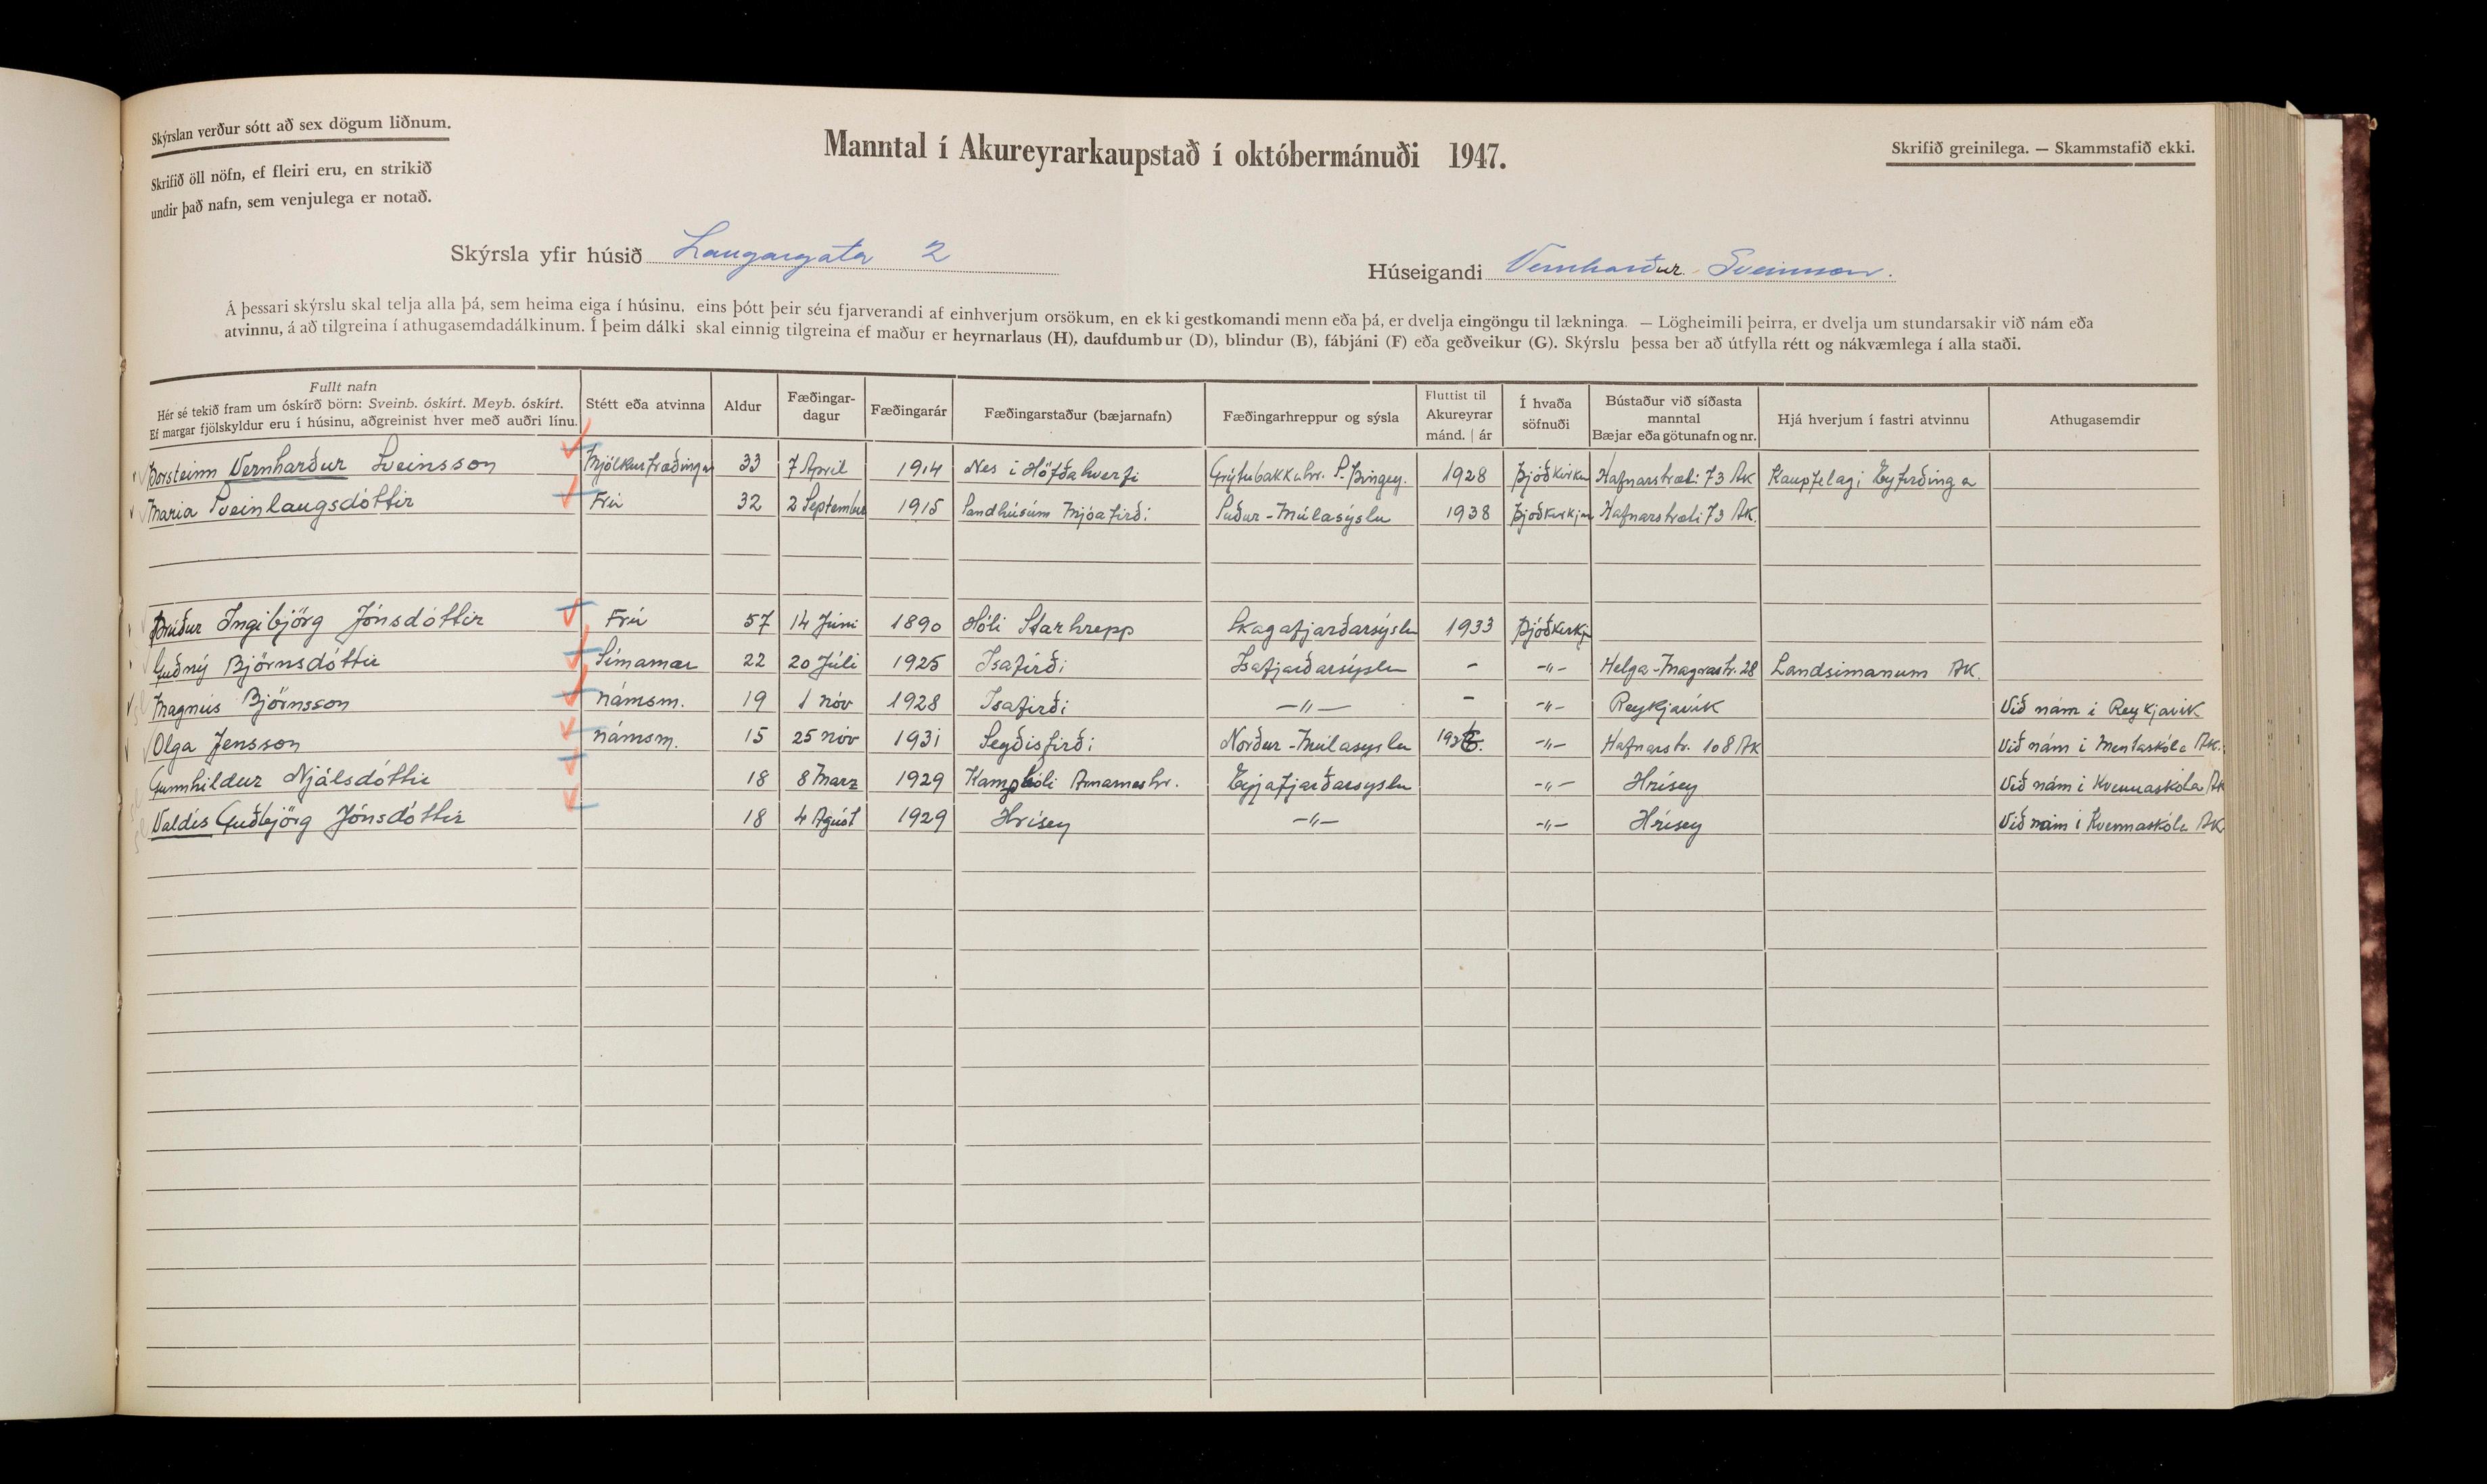 Skýrslan verður sótt að sex dögum liðnum.
Skrifið öll nöfn, ef fleiri eru, en strikið
undir það nafn, sem venjulega er notað.
Manntal í Akureyrarkaupstað í októbermánuði 1947.
Skrifið greinilega. — Skammstafið ekki.
Skýrsla yfir húsið Laugargata 2
Húseigandi Vernharður Sveinsson.
Á þessari skýrslu skal telja alla þá, sem heima eiga í húsinu, eins þótt þeir séu fjarverandi af einhverjum orsökum, en ekki gestkomandi menn eða þá, er dvelja eingöngu til lækninga. — Lögheimili þeirra, er dvelja um stundarsakir við nám eða
atvinnu, á að tilgreina í athugasemdadálkinum. Í þeim dálki skal einnig tilgreina ef maður er heyrnarlaus (H), daufdumbur (D), blindur (B), fábjáni (F) eða geðveikur (G). Skýrslu þessa ber að útfylla rétt og nákvæmlega í alla staði.
Fullt nafn
Hér sé tekið fram um óskírð börn: Sveinb. óskírt. Meyb. óskírt.
Ef margar fjölskyldur eru í húsinu, aðgreinist hver með auðri línu.
Stétt eða atvinna
Aldur
Fæðingar-
dagur
Fæðingarár
Fæðingarstaður (bæjarnafn)
Fæðingarhreppur og sýsla
Fluttist til
Akureyrar
mánd. | ár
Í hvaða
söfnuði
Bústaður við síðasta
manntal
Bæjar eða götunafn og nr.
Hjá hverjum í fastri atvinnu
Athugasemdir
Þorsteinn Vernharður Sveinsson Mjólkurfræðingur 33 7 Apríl 1914 Nes i Höfðahverfi Grýtubakkahr. S-Þingey. 1928 Þjóðkirkju Hafnarstræti 73 Ak Kaupfelagi Eyfirðinga
Maria Sveinlaugsdóttir Frú 32 2 September 1915 Sandhúsum Mjóafirði Suður-Múlasýslu 1938 Þjóðkirkju Hafnarstræti 73 Ak.
Þrúður Ingibjörg Jónsdóttir Frú 57 14 Júni 1890 Hóli Starhrepp Skagafjarðarsýslu 1933 Þjóðkirkju
Guðný Björnsdóttir Símamær 22 20 Júli 1925 Isafirði Isafjarðarsýslu - -"- Helga-Magrastr. 28 Landsimanum AK.
Magnús Björnsson námsm. 19 1 nóv 1928 Isafirði -"- - -"- Reykjavík Við nám i Reykjavik
Olga Jensson námsm. 15 25 nóv 1931 Seyðisfirði Norður-Múlasyslu -"- Hafnarstr. 108 Ak Við nám i Mentaskóla AK.
Gunnhildur Njálsdóttir 18 8 Marz 1929 Kamphóli Arnarneshr. Eyjafjarðarsyslu -"- Hrísey Við nám i Kvennaskóla AK
Valdís Guðbjörg Jónsdóttir 18 4 Agúst 1929 Hrísey -"- -"- Hrísey Við nám i Kvennaskóla AK